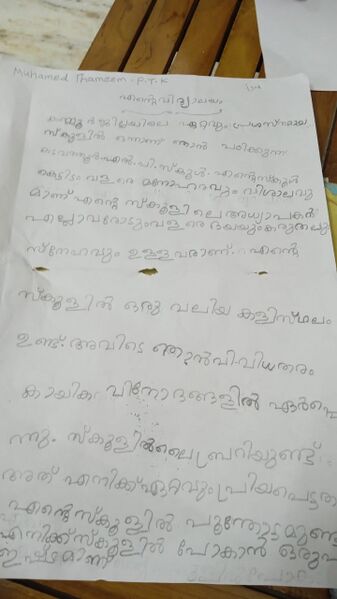 Muhamed Thameem - P.T.K
എന്റെ വിദ്യാലയം
കണ്ണൂർ ജില്ലയിലെ ഏറ്റവും പ്രശസ്തമായ
സ്കൂളിൽ ഒന്നാണ് ഞാൻ പഠിക്കുന്ന
കടവത്തൂർ എൽ.പി.സ്കൂൾ. എന്റെ സ്കൂൾ
കെട്ടിടം വളരെ മനോഹരവും വിശാലവു
മാണ് എന്റെ സ്കൂളിലെ അധ്യാപകർ
എല്ലാവരോടും വളരെ ദയയും കരുതലും
സ്നേഹവും ഉള്ളവരാണ്. എന്റെ
സ്കൂളിൽ ഒരു വലിയ കളിസ്ഥലം
ഉണ്ട്. അവിടെ ഞാൻ വിവിധതരം
കായിക വിനോദങ്ങളിൽ ഏർപ്പെ
ന്നു. സ്കൂളിൽ ലൈബ്രറിയുണ്ട്
അത് എനിക്ക് ഏറ്റവും പ്രിയപെട്ടതാ
എന്റെ സ്കൂളിൽ പൂന്തോട്ടമുണ്ട്
എനിക്ക് സ്കൂളിൽ പോകാൻ ഒരുപ
ഇഷ്ടമാണ്